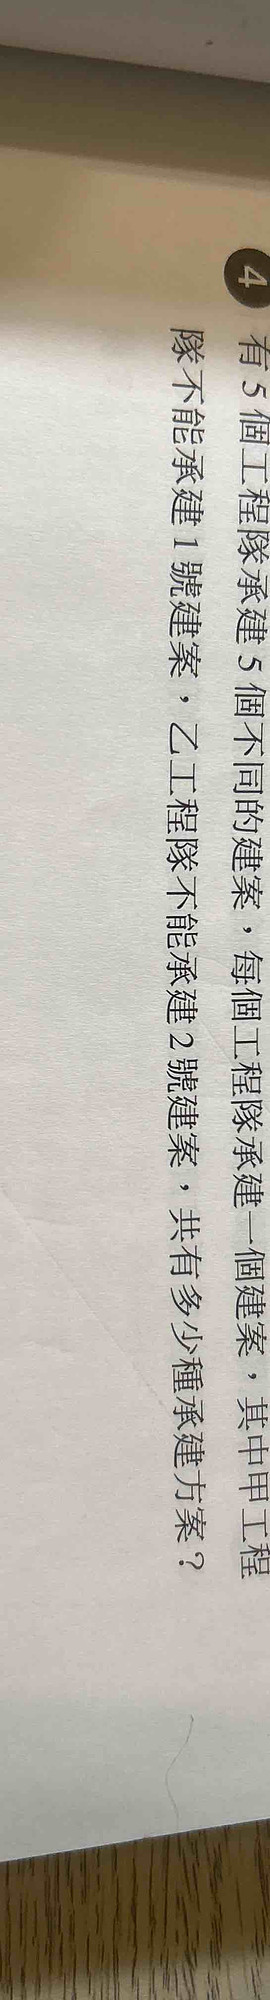 4 有 5 個工程隊承建 5 個不同的建案，每個工程隊承建一個建案，其中甲工程
隊不能承建 1 號建案，乙工程隊不能承建 2 號建案，共有多少種承建方案？